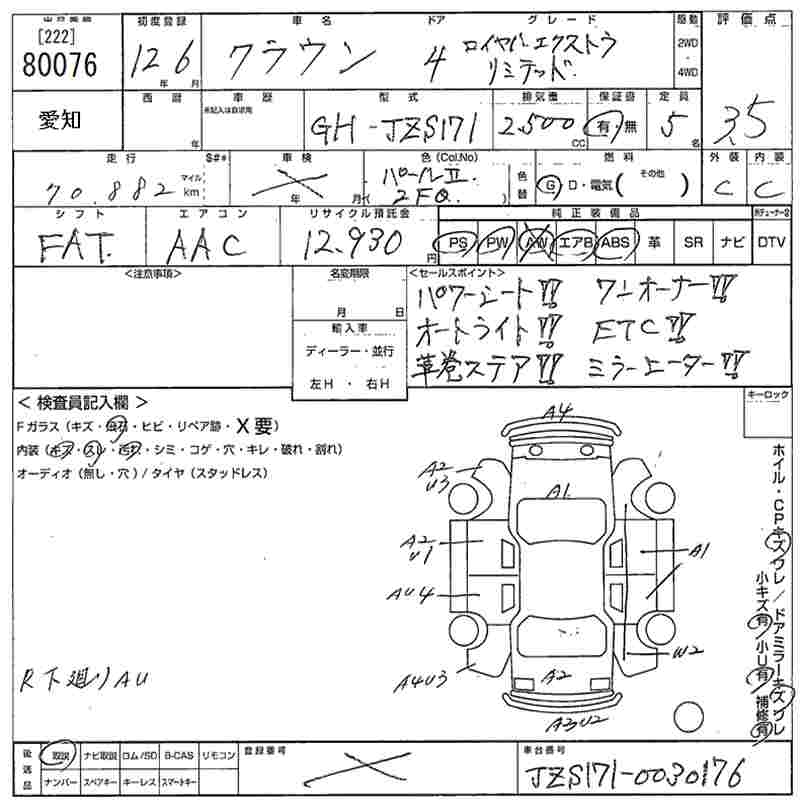 [222]
80076
初度登録
12年6月
車名
クラウン
ドア
4
グレード
ロイヤルエクストラ
リミテッド
駆動
2WD
・
4WD
評価点
3.5
愛知
西暦
年
車歴
※記入は自家用
型式
GH-JZS171
排気量
2.500 CC
保証書
有・無
定員
5名
走行
70.882 マイル km
$#*
車検
年 月
色(Col.No)
パールII.
2FQ.
色替
燃料
G D・電気( その他 )
外装
C
内装
C
シフト
FAT.
エアコン
AAC
リサイクル預託金
12.930円
純正装備品
PS PW AW エアB ABS 革 SR ナビ
DTV
<注意事項>
名変期限
月 日
輸入車
ディーラー・並行
左H ・ 右H
<セールスポイント>
パワーシート!! ワンオーナー!!
オートライト!! ETC!!
革巻ステア!! ミラーヒーター!!
キーロック
< 検査員記入欄 >
Fガラス(キズ・飛石・ヒビ・リペア跡・X要)
内装(キズ・スレ・汚れ・シミ・コゲ・穴・キレ・破れ・割れ)
オーディオ(無し・穴)/タイヤ(スタッドレス)
A4
A2
U3
A1
A2
U1
A1
AU4
W2
A4U3
A2
A3U2
R下廻りAU
ホイル・CPキズワレ/ドアミラーキズワレ
小キズ有 小U有 補修有
後送品
取説 ナビ取説 ロム/SD B-CAS リモコン
ナンバー スペアキー キーレス スマートキー
登録番号
車台番号
JZS171-0030176